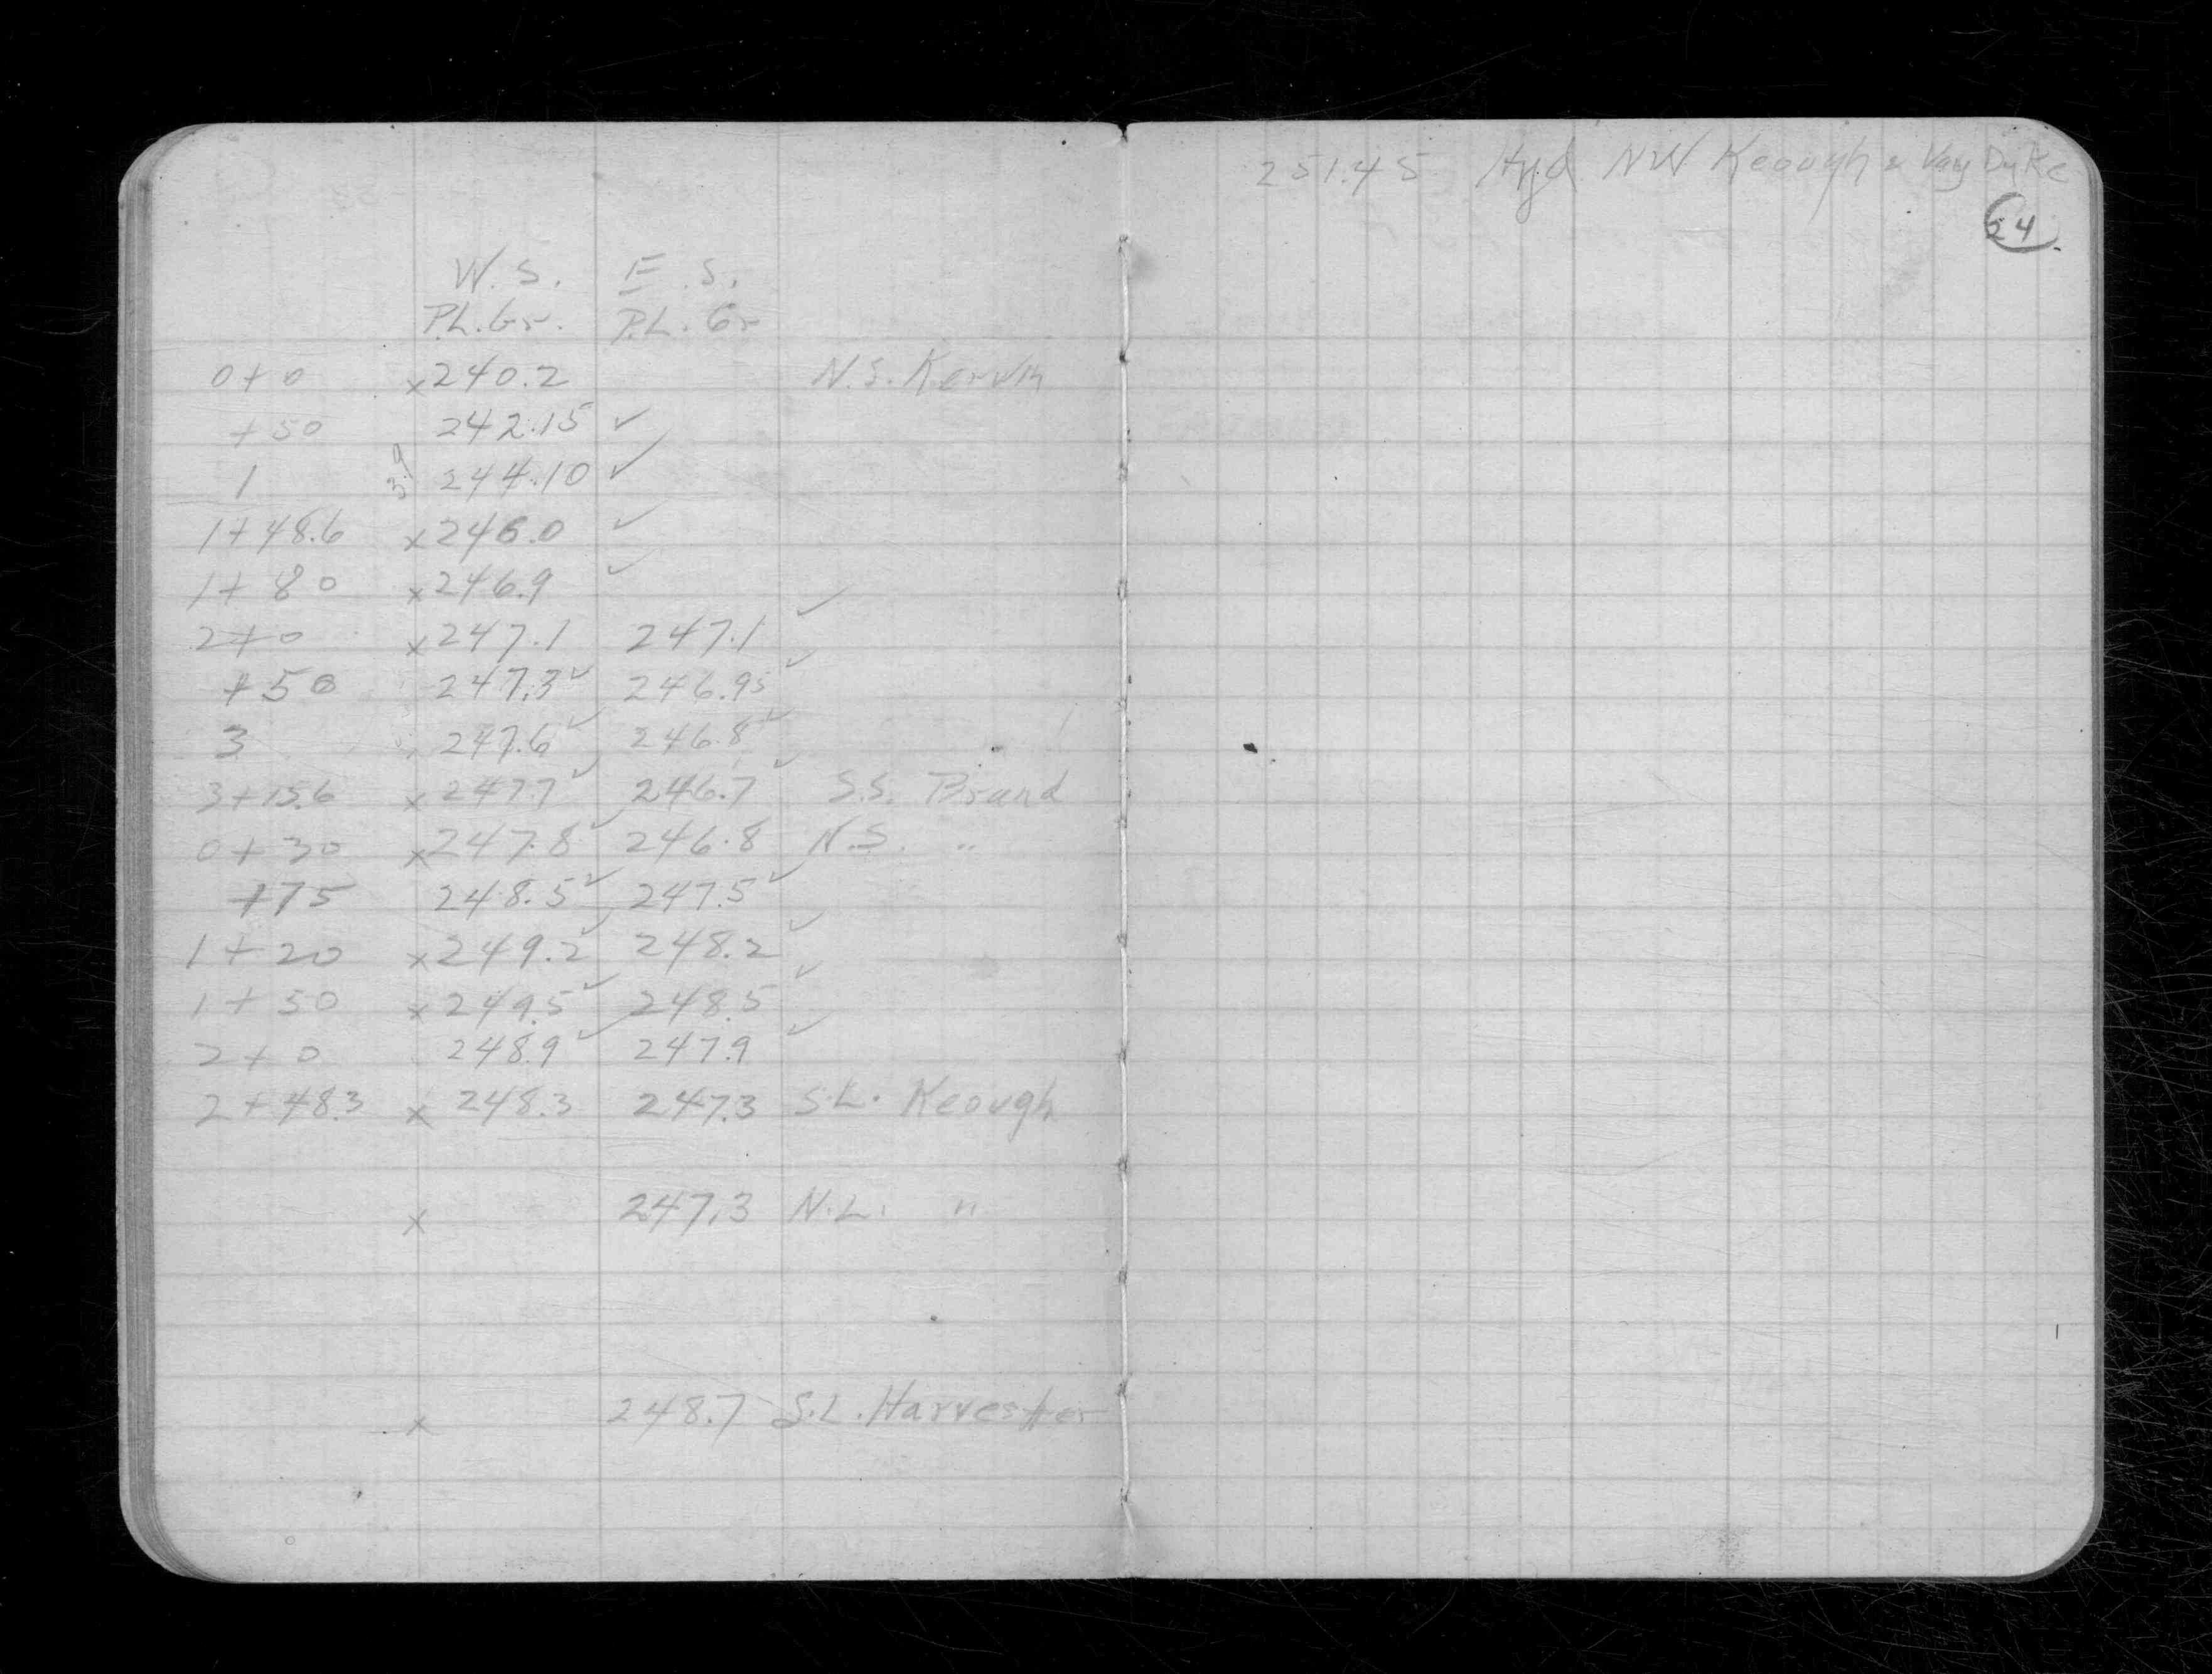 W. S. E. S.
P.L. Gr. P.L. Gr
0+0 x 240.2 N.S. Kervin
+50 242.15 ✓
1 3.9 244.10 ✓
1+48.6 x 246.0 ✓
1+80 x 246.9 ✓
2+0 x 247.1 247.1 ✓
+50 247.3 ✓ 246.95 ✓
3 247.6 ✓ 246.8 ✓
3+15.6 x 247.7 ✓ 246.7 ✓ S.S. Brand
0+30 x 247.8 ✓ 246.8 N.S. "
+75 248.5 ✓ 247.5 ✓
1+20 x 249.2 ✓ 248.2 ✓
1+50 x 249.5 ✓ 248.5 ✓
2+0 248.9 ✓ 247.9 ✓
2+48.3 x 248.3 247.3 S.L. Keough
x 247.3 N.L. "
x 248.7 S.L. Harvester
251.45 Hyd NW Keough & Van Dyke
24